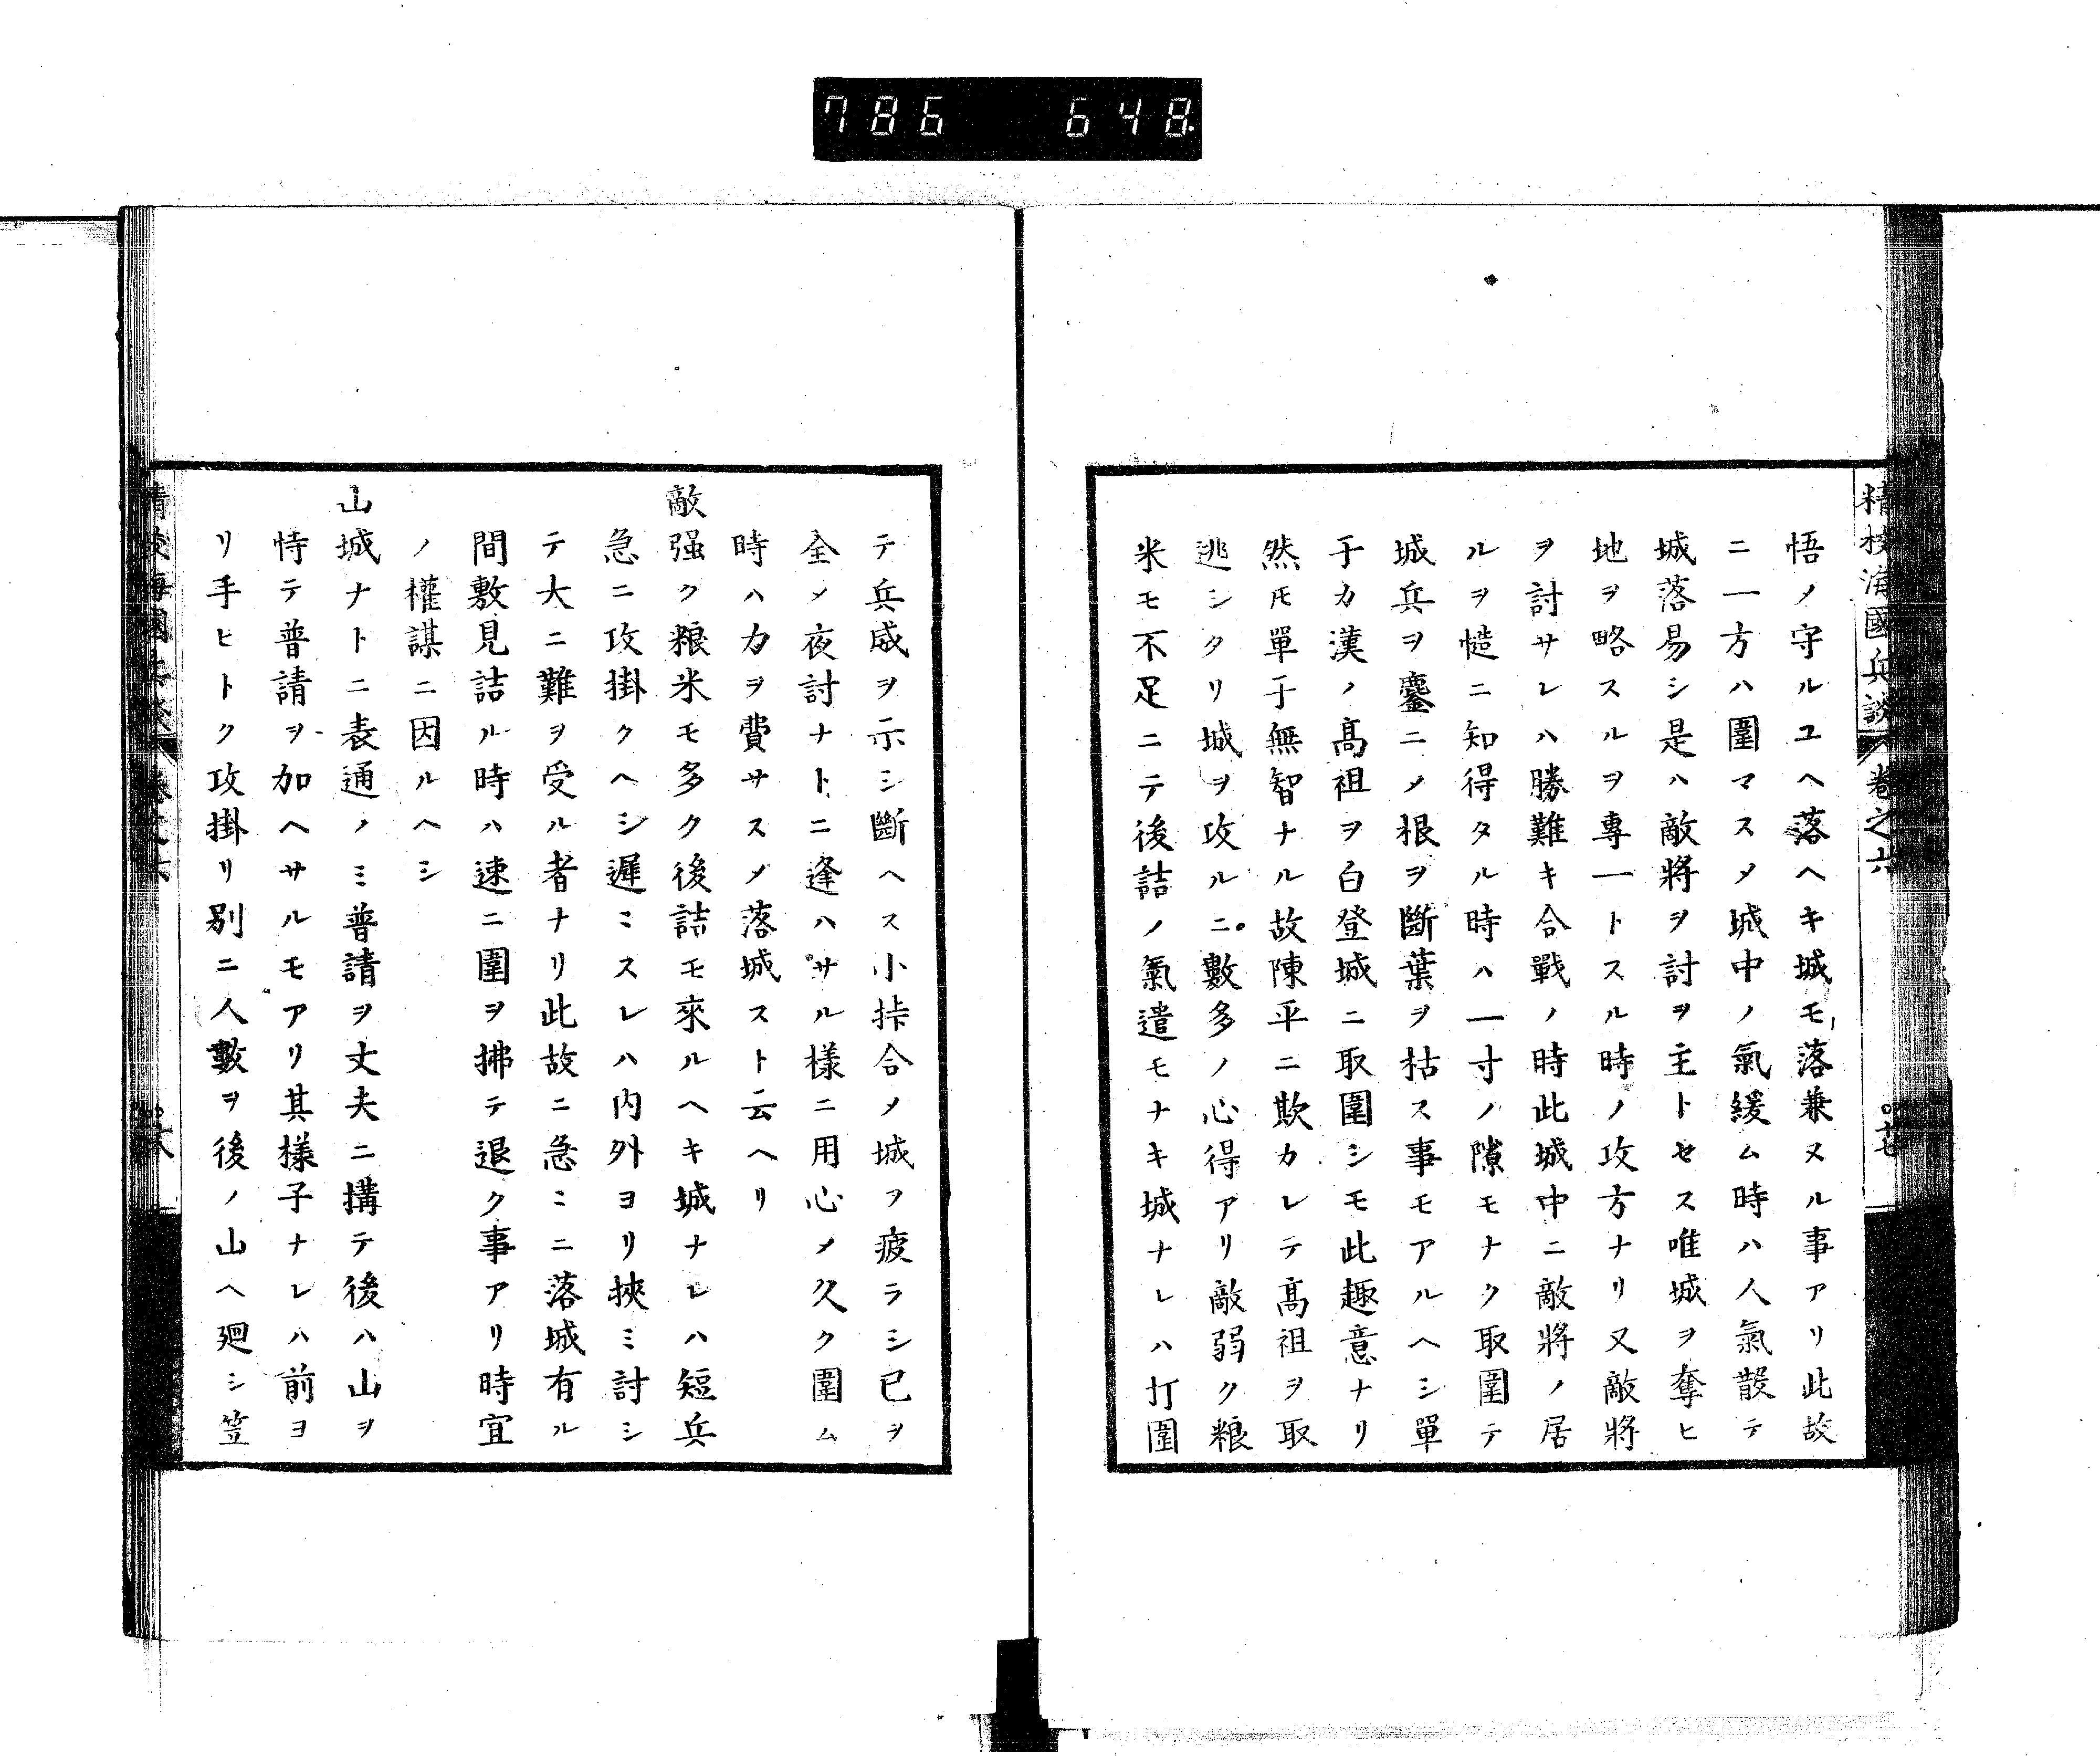 786 648
精校海國兵談 卷之六
悟ノ守ルユヘ落ヘキ城モ落兼ヌル事アリ此故
ニ一方ハ圍マスメ城中ノ氣緩ム時ハ人氣散テ
城落易シ是ハ敵將ヲ討ヲ主トセス唯城ヲ奪ヒ
地ヲ略スルヲ專一トスル時ノ攻方ナリ又敵將
ヲ討サレハ勝難キ合戰ノ時此城中ニ敵將ノ居
ルヲ慥ニ知得タル時ハ一寸ノ隙モナク取圍テ
城兵ヲ鏖ニメ根ヲ斷葉ヲ枯ス事モアルヘシ單
于カ漢ノ髙祖ヲ白登城ニ取圍シモ此趣意ナリ
然𪜈單于無智ナル故陳平ニ欺カレテ髙祖ヲ取
逃シタリ城ヲ攻ルニ數多ノ心得アリ敵弱ク粮
米モ不足ニテ後詰ノ氣遣モナキ城ナレハ打圍
テ兵威ヲ示シ斷ヘス小挊合メ城ヲ疲ラシ已ヲ
全メ夜討ナトニ逢ハサル樣ニ用心メ久ク圍ム
時ハ力ヲ費サスメ落城スト云ヘリ
敵强ク粮米モ多ク後詰モ來ルヘキ城ナレハ短兵
急ニ攻掛クヘシ遲ミスレハ内外ヨリ挾ミ討シ
テ大ニ難ヲ受ル者ナリ此故ニ急ニニ落城有ル
間敷見詰ル時ハ速ニ圍ヲ拂テ退ク事アリ時宜
ノ權謀ニ因ルヘシ
山城ナトニ表通ノミ普請ヲ丈夫ニ搆テ後ハ山ヲ
恃テ普請ヲ加ヘサルモアリ其樣子ナレハ前ヨ
リ手ヒトク攻掛リ別ニ人數ヲ後ノ山ヘ廻シ笠